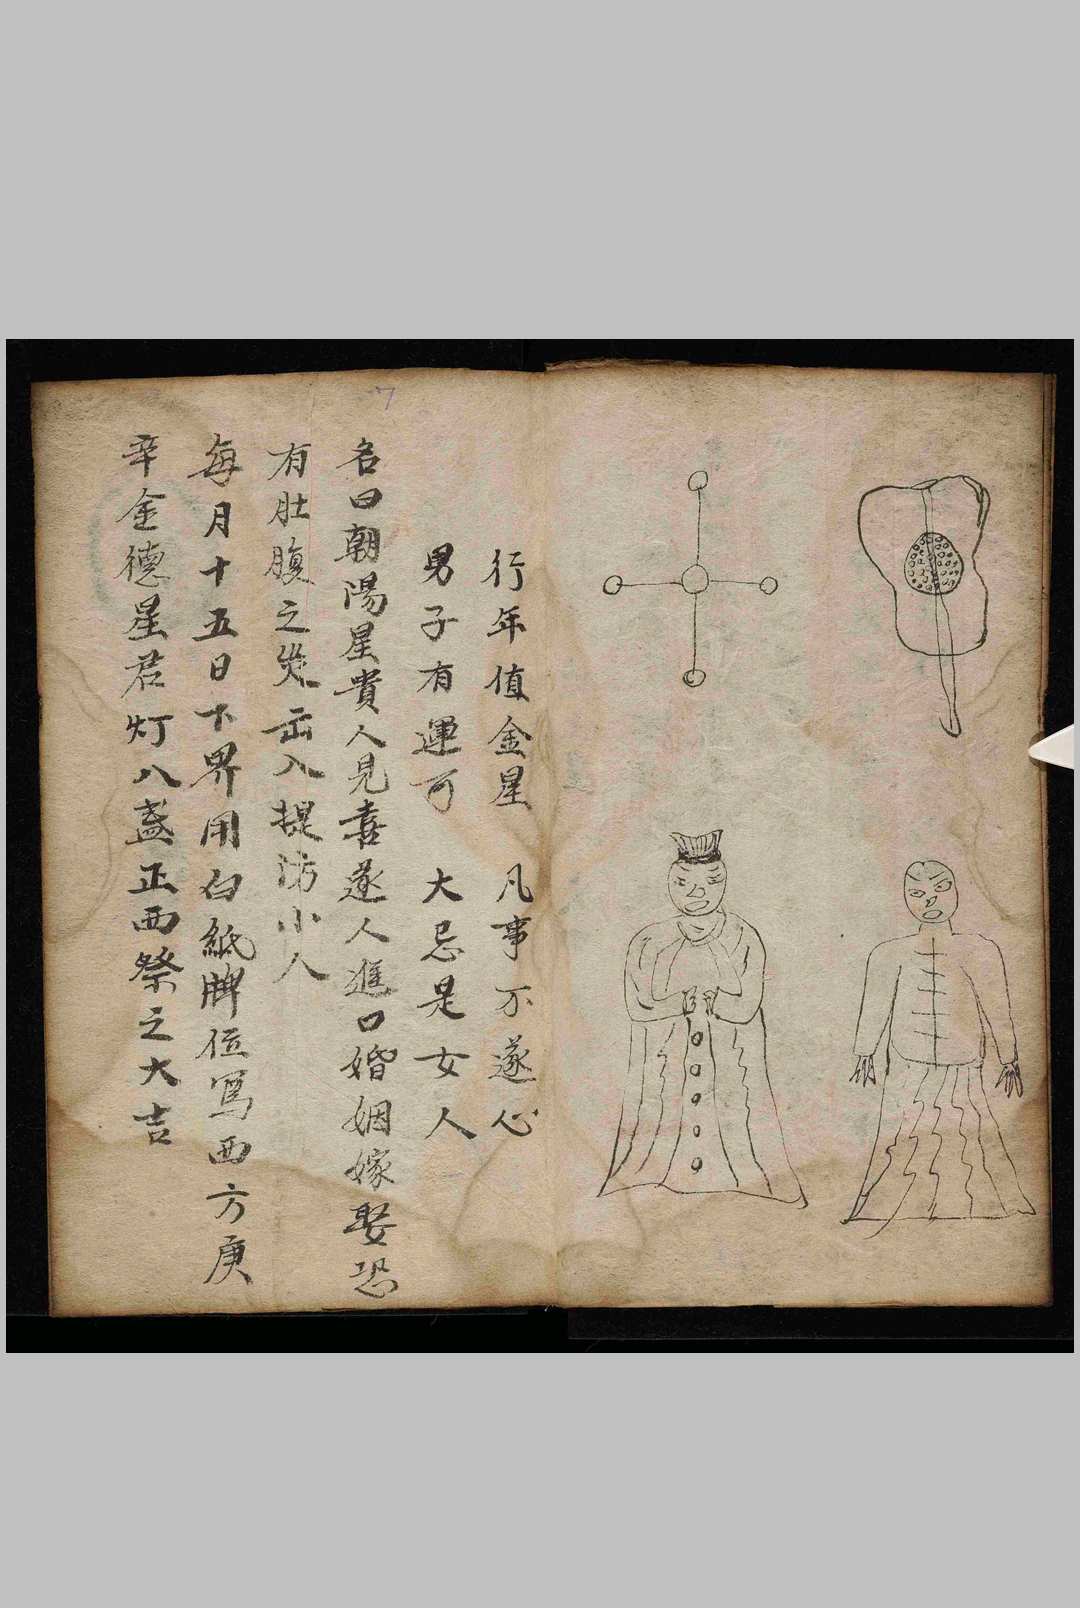 行年值金星　凡事不遂心
男子有運可　大忌是女人
名曰朝陽星貴人見喜遂人進口婚姻嫁娶恐
有肚腹之灾出入提防小人
每月十五日下界用白紙牌位寫西方庚
辛金德星君灯八盞正西祭之大吉
7